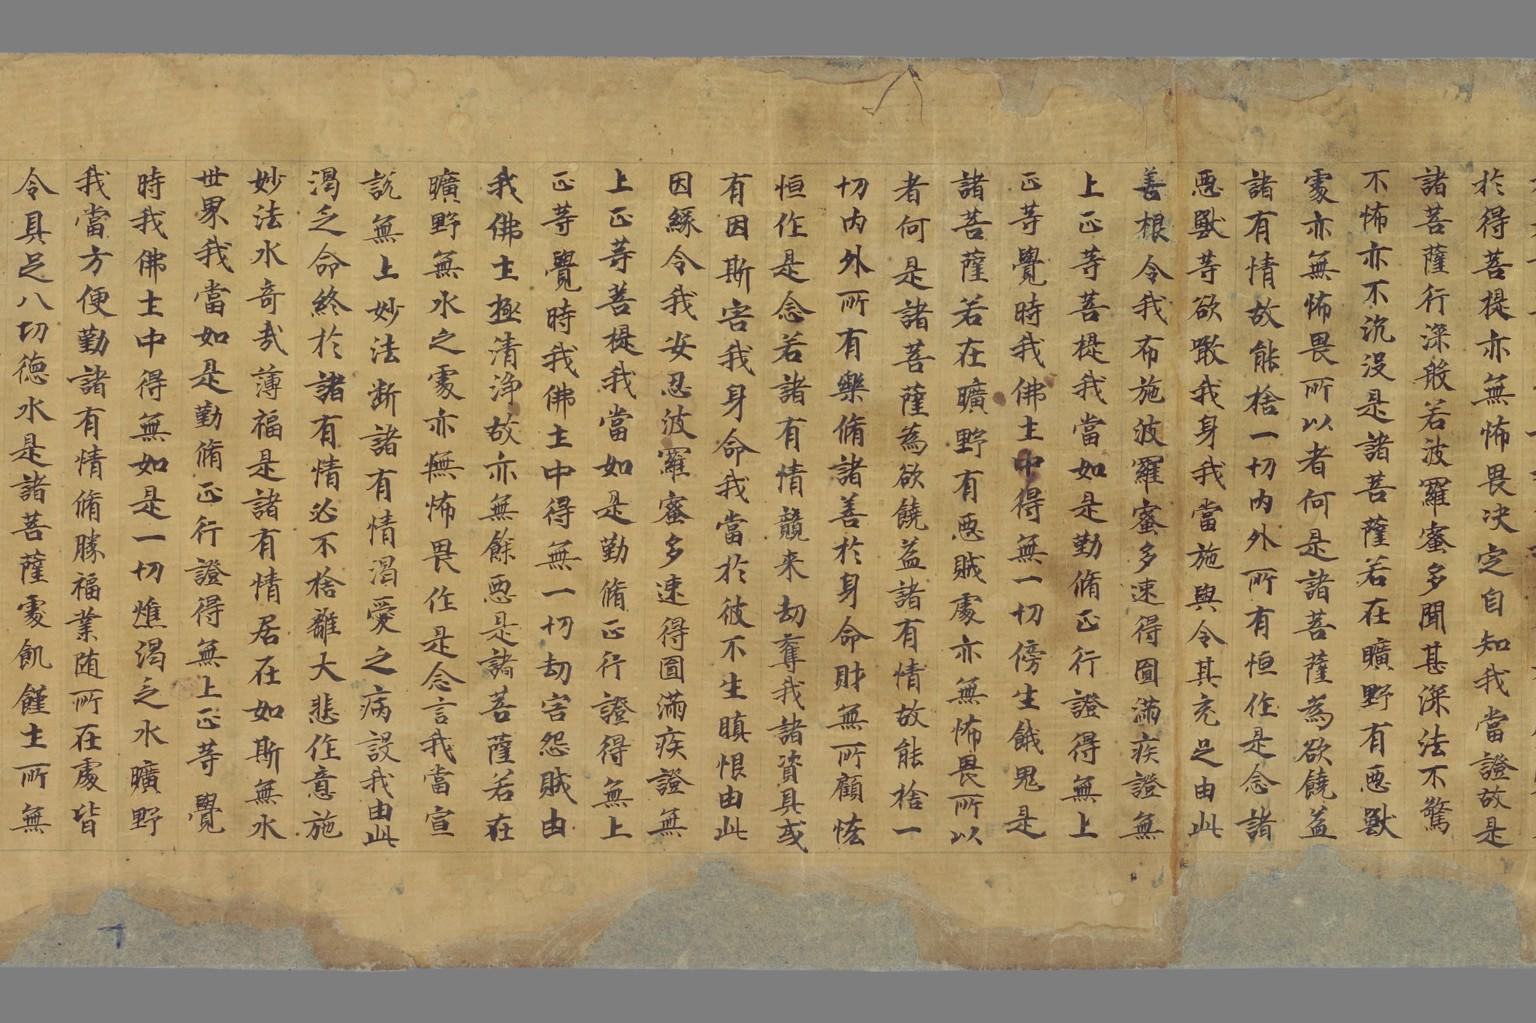 於得菩提亦無怖畏決定自知我當證故是
諸菩薩行深般若波羅蜜多聞甚深法不驚
不怖亦不沉沒是諸菩薩若在曠野有惡獸
處亦無怖畏所以者何是諸菩薩為欲饒益
諸有情故能捨一切內外所有恒作是念諸
惡獸等欲噉我身我當施與令其充足由此
善根令我布施波羅蜜多速得圓滿疾證無
上正等菩提我當如是勤脩正行證得無上
正等覺時我佛土中得無一切傍生餓鬼是
諸菩薩若在曠野有惡賊處亦無怖畏所以
者何是諸菩薩為欲饒益諸有情故能捨一
切內外所有樂脩諸善於身命財無所顧悋
恒作是念若諸有情競来劫奪我諸資具或
有因斯害我身命我當於彼不生瞋恨由此
因緣令我安忍波羅蜜多速得圓滿疾證無
上正等菩提我當如是勤脩正行證得無上
正等覺時我佛土中得無一切劫害怨賊由
我佛土極清淨故亦無餘惡是諸菩薩若在
曠野無水之處亦無怖畏作是念言我當宣
說無上妙法断諸有情渴愛之病設我由此
渴乏命終於諸有情必不捨離大悲作意施
妙法水奇哉薄福是諸有情居在如斯無水
世界我當如是勤脩正行證得無上正等覺
時我佛土中得無如是一切燋渴乏水曠野
我當方便勤諸有情脩勝福業随所在處皆
令具足八切德水是諸菩薩處飢饉土所無